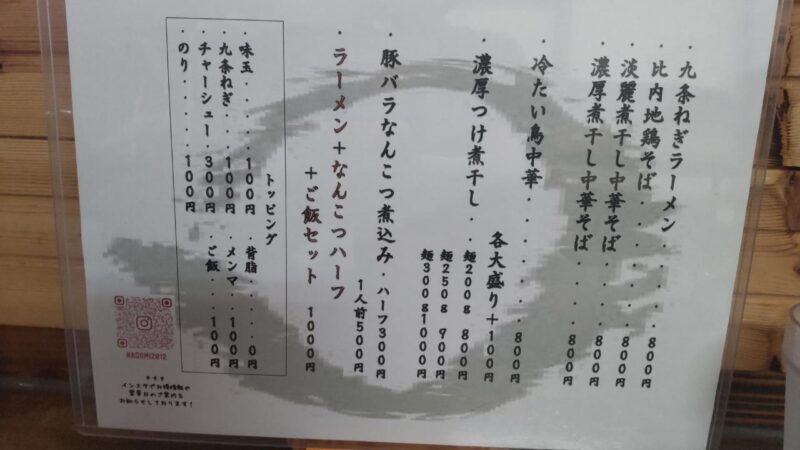 ・九条ねぎラーメン・・・・800円
・比内地鶏そば・・・・・・800円
・淡麗煮干し中華そば・・・800円
・濃厚煮干し中華そば・・・800円
・冷たい鳥中華・・・・・・800円
各大盛り+100円
・濃厚つけ煮干し・・麺200g 800円
麺250g 900円
麺300g1000円
・豚バラなんこつ煮込み・ハーフ300円
1人前500円
・ラーメン+なんこつハーフ
+ご飯セット 1000円
トッピング
・味玉・・・・・100円 ・背脂・・・・0円
・九条ねぎ・・・100円 ・メンマ・・100円
・チャーシュー・300円 ご飯・・・100円
・のり・・・・・100円
NAGOMI2012
インスタでお得情報や
営業日のご案内を
お知らせしております!